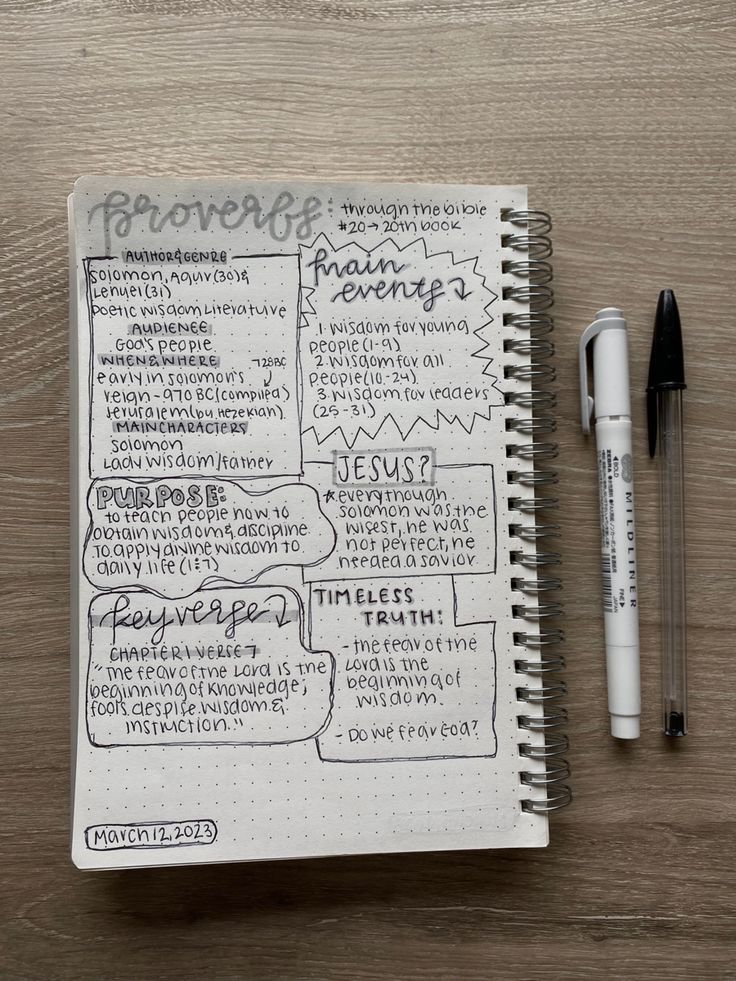 Proverbs:
through the bible
#20 → 20th book
AUTHOR & GENRE
Solomon, Agur (30) &
Lemuel (31)
Poetic Wisdom Literature
AUDIENCE
God's people
WHEN & WHERE
728BC
early in Solomon's
reign - 970 BC (compiled)
Jerusalem (by Hezekiah)
MAIN CHARACTERS
Solomon
Lady Wisdom/Father
main
events
1. Wisdom for young
people (1-9)
2. Wisdom for all
people (10-24)
3. Wisdom for leaders
(25-31)
PURPOSE:
to teach people how to
obtain wisdom & discipline
To apply divine wisdom to
daily life (1:7)
JESUS?
*everythough
Solomon was the
wisest, he was
not perfect, he
needed a savior
key verse
CHAPTER 1 VERSE 7
"The fear of the Lord is the
beginning of knowledge;
fools despise wisdom &
instruction."
TIMELESS
TRUTH:
- the fear of the
Lord is the
beginning of
wisdom.
- Do we fear God?
March 12, 2023
BOLD
ZEBRA
MILDLINER
FINE
JAPAN